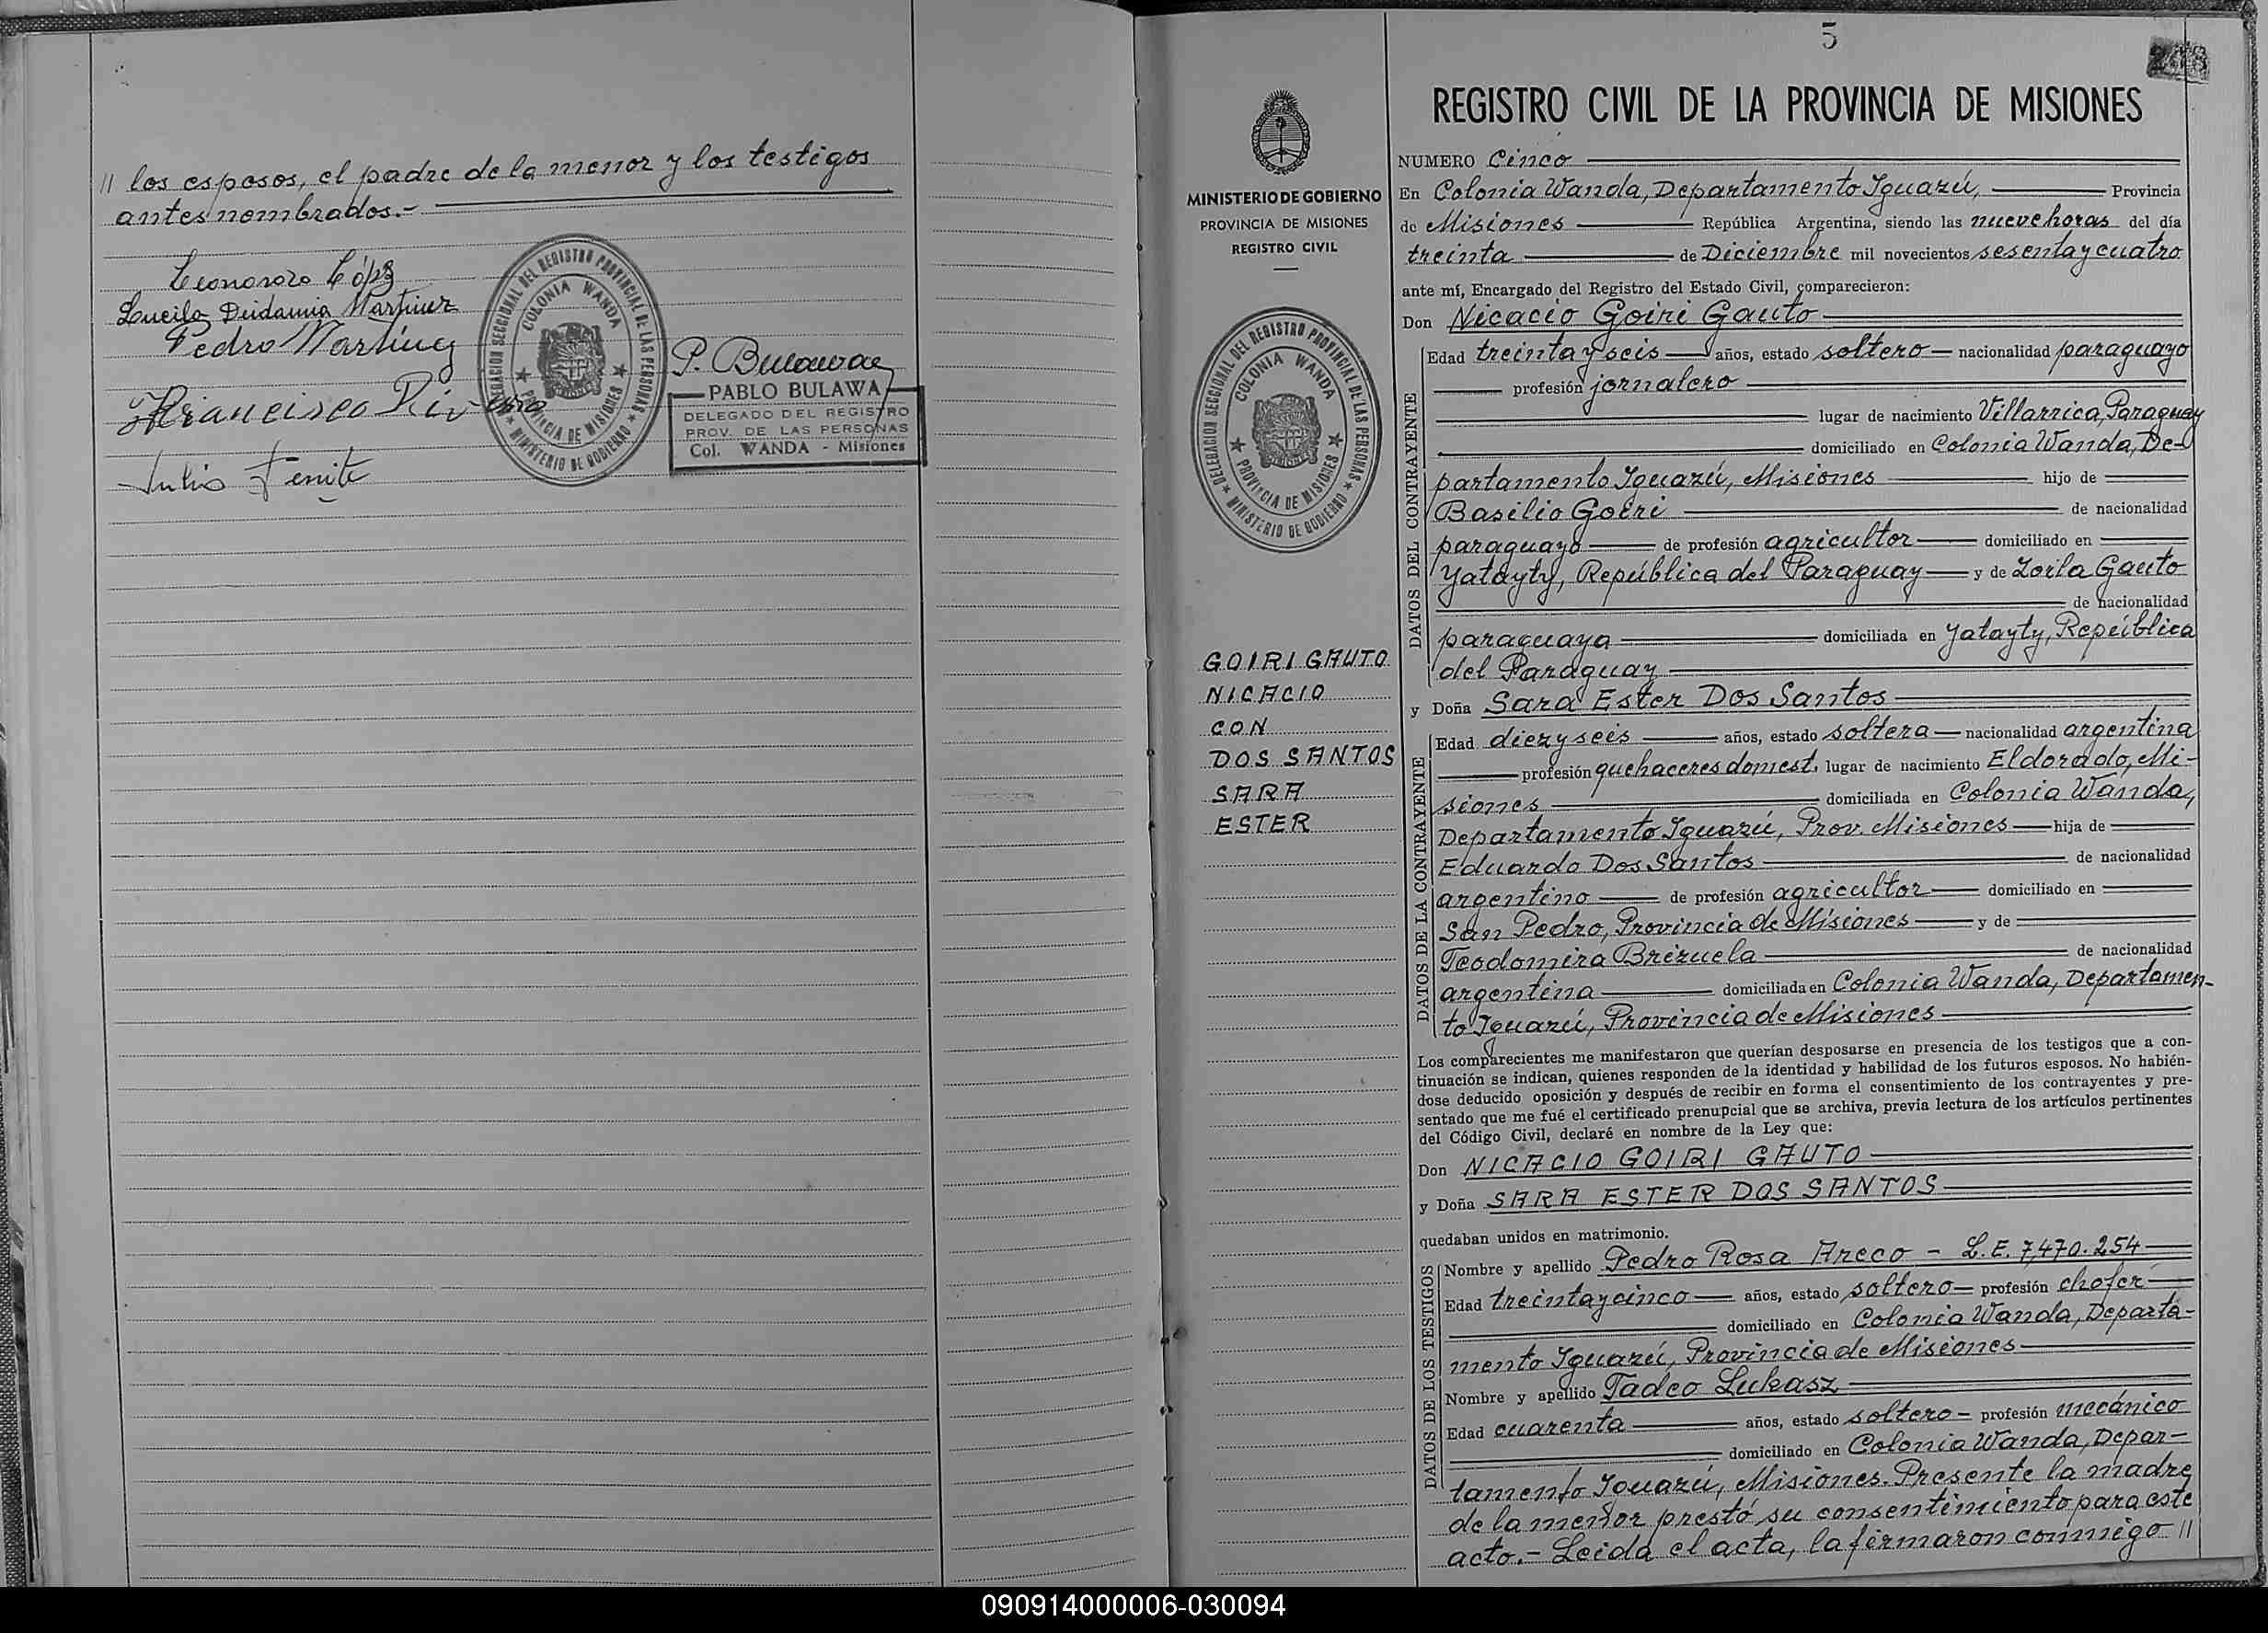 // los esposos, el padre de la menor y los testigos
antes nombrados.-
López
Lucila Deidamia Martinez
Pedro Martínez
Francisco
Julio
DELEGACION SECCIONAL DEL REGISTRO PROVINCIAL DE LAS PERSONAS
COLONIA WANDA
PROVINCIA DE MISIONES
MINISTERIO DE GOBIERNO
P. Bulawa
PABLO BULAWA
DELEGADO DEL REGISTRO
PROV. DE LAS PERSONAS
Col. WANDA - Misiones
5
MINISTERIO DE GOBIERNO
PROVINCIA DE MISIONES
REGISTRO CIVIL
DELEGACION SECCIONAL DEL REGISTRO PROVINCIAL DE LAS PERSONAS
COLONIA WANDA
PROVINCIA DE MISIONES
MINISTERIO DE GOBIERNO
GOIRI GAUTO
NICACIO
CON
DOS SANTOS
SARA
ESTER
REGISTRO CIVIL DE LA PROVINCIA DE MISIONES
NUMERO Cinco
En Colonia Wanda, Departamento Iguazú, Provincia
de Misiones República Argentina, siendo las nueve horas del día
treinta de Diciembre mil novecientos sesenta y cuatro
ante mí, Encargado del Registro del Estado Civil, comparecieron:
Don Nicacio Goiri Gauto
DATOS DEL CONTRAYENTE
Edad treinta y seis años, estado soltero nacionalidad paraguayo
profesión jornalero
lugar de nacimiento Villarrica, Paraguay
domiciliado en Colonia Wanda, De-
partamento Iguazú, Misiones hijo de
Basilio Goiri de nacionalidad
paraguayo de profesión agricultor domiciliado en
Yatayty, República del Paraguay y de Zoila Gauto
de nacionalidad
paraguaya domiciliada en Yatayty, República
del Paraguay
y Doña Sara Ester Dos Santos
DATOS DE LA CONTRAYENTE
Edad diez y seis años, estado soltera nacionalidad argentina
profesión quehaceres domest. lugar de nacimiento Eldorado, Mi-
siones domiciliada en Colonia Wanda,
Departamento Iguazú, Prov. Misiones hija de
Eduardo Dos Santos de nacionalidad
argentino de profesión agricultor domiciliado en
San Pedro, Provincia de Misiones y de
Teodomira Brizuela de nacionalidad
argentina domiciliada en Colonia Wanda, Departamen-
to Iguazú, Provincia de Misiones
Los comparecientes me manifestaron que querían desposarse en presencia de los testigos que a con-
tinuación se indican, quienes responden de la identidad y habilidad de los futuros esposos. No habién-
dose deducido oposición y después de recibir en forma el consentimiento de los contrayentes y pre-
sentado que me fué el certificado prenupcial que se archiva, previa lectura de los artículos pertinentes
del Código Civil, declaré en nombre de la Ley que:
Don NICACIO GOIRI GAUTO
y Doña SARA ESTER DOS SANTOS
quedaban unidos en matrimonio.
DATOS DE LOS TESTIGOS
Nombre y apellido Pedro Rosa Areco - L.E. 7,470.254
Edad treinta y cinco años, estado soltero profesión chofer
domiciliado en Colonia Wanda, Departa-
mento Iguazú, Provincia de Misiones
Nombre y apellido Tadeo Lukasz
Edad cuarenta años, estado soltero profesión mecánico
domiciliado en Colonia Wanda, Depar-
tamento Iguazú, Misiones. Presente la madre
de la menor prestó su consentimiento para este
acto.- Leida el acta, la firmaron conmigo //
090914000006-030094